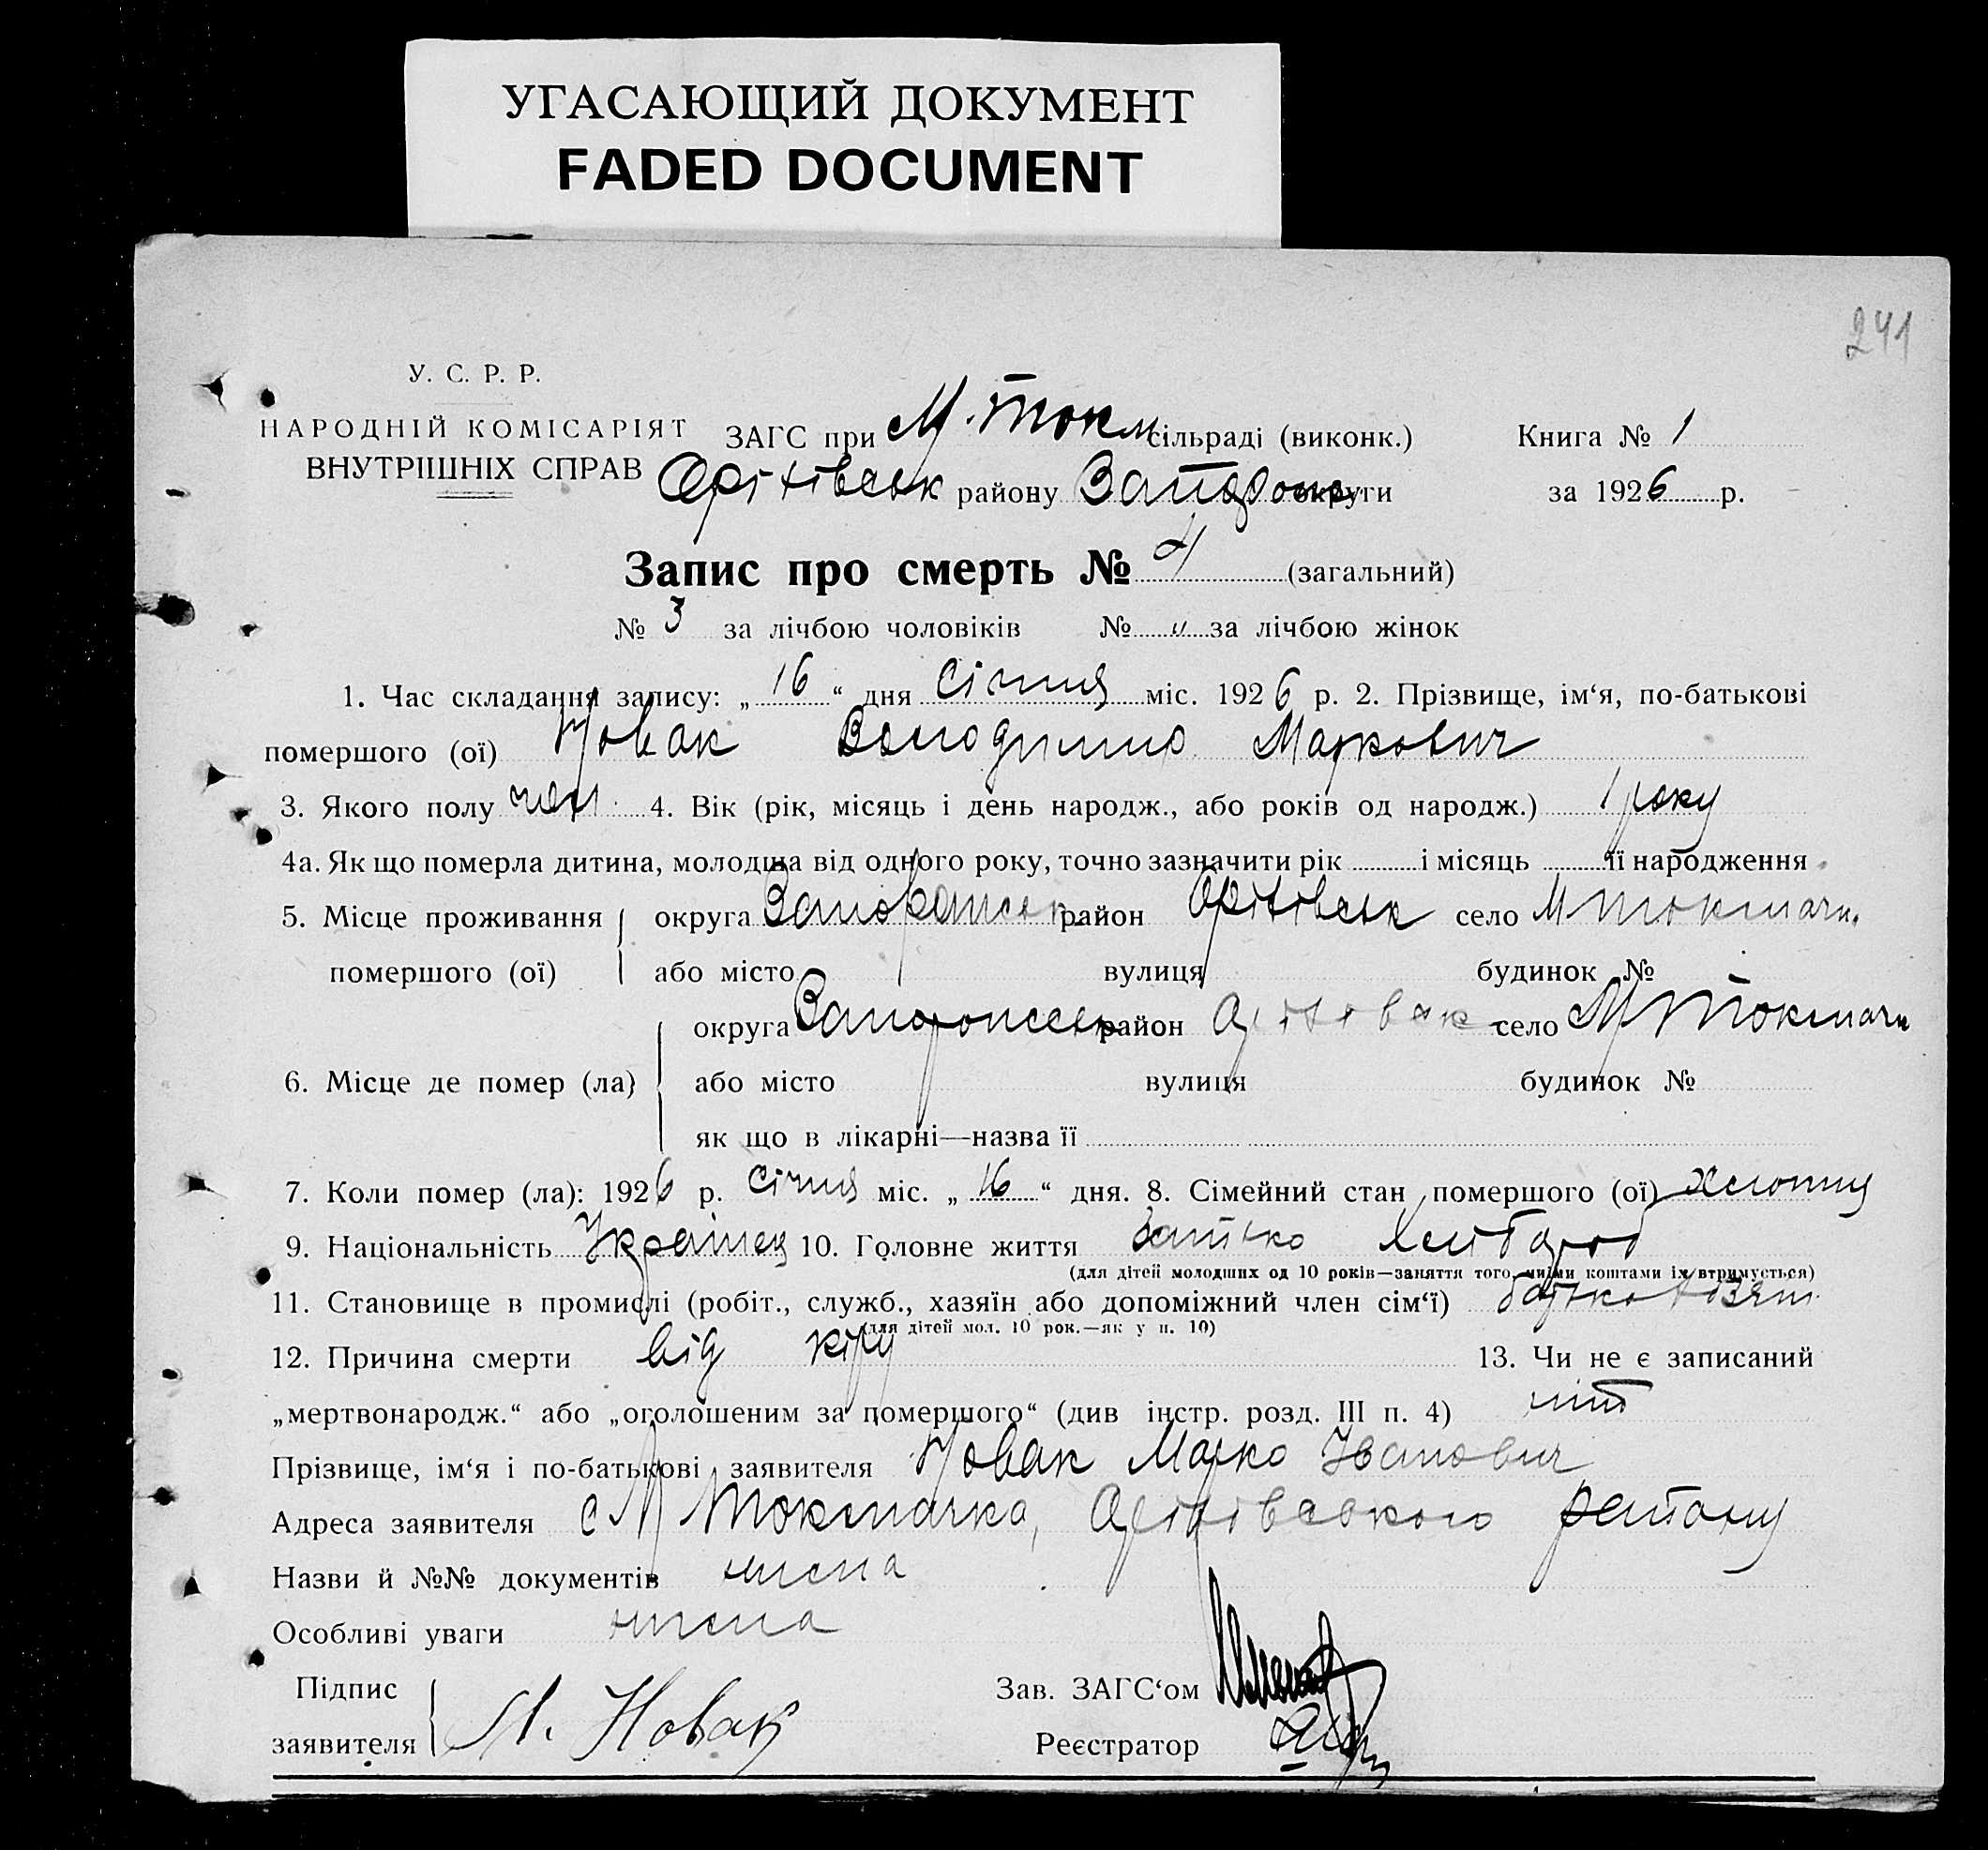 УГАСАЮЩИЙ ДОКУМЕНТ
FADED DOCUMENT
241
У. С. Р. Р.
НАРОДНІЙ КОМІСАРІЯТ
ВНУТРІШНІХ СПРАВ
ЗАГС при М. Токм сільраді (виконк.) Книга № 1
Оріхівськ району Запорож округи за 1926 р.
Запис про смерть № 4 (загальний)
№ 3 за лічбою чоловіків № „ за лічбою жінок
1. Час складання запису: „16“ дня Січня міс. 1926 р. 2. Прізвище, ім‘я, по-батькові
помершого (ої) Новак Володимир Маркович
3. Якого полу чол. 4. Вік (рік, місяць і день народж., або років од народж.) 1 року
4а. Як що померла дитина, молодша від одного року, точно зазначити рік і місяць її народження
5. Місце проживання округа Запорожськ район Оріхівськ село М Токмачк.
помершого (ої) або місто вулиця будинок №
округа Запорожськ район Оріхівськ село М Токмачк
6. Місце де помер (ла) або місто вулиця будинок №
як що в лікарні—назва її
7. Коли помер (ла): 1926 р. Січня міс. „16“ дня. 8. Сімейний стан помершого (ої)
9. Національність Українец 10. Головне життя батько хлібороб
(для дітей молодших од 10 років—заняття того, чиїми коштами їх втримується)
11. Становище в промислі (робіт., служб., хазяїн або допоміжний член сім‘ї) батько
(для дітей мол. 10 рок.—як у п. 10)
12. Причина смерти від кіру 13. Чи не є записаний
„мертвонародж.“ або „оголошеним за помершого“ (див інстр. розд. III п. 4) ніт
Прізвище, ім‘я і по-батькові заявителя Новак Марко Іванович
Адреса заявителя с М Токмачка, Оріхівського району
Назви й №№ документів нема
Особливі уваги нема
Підпис Зав. ЗАГС‘ом
заявителя М. Новак Реєстратор